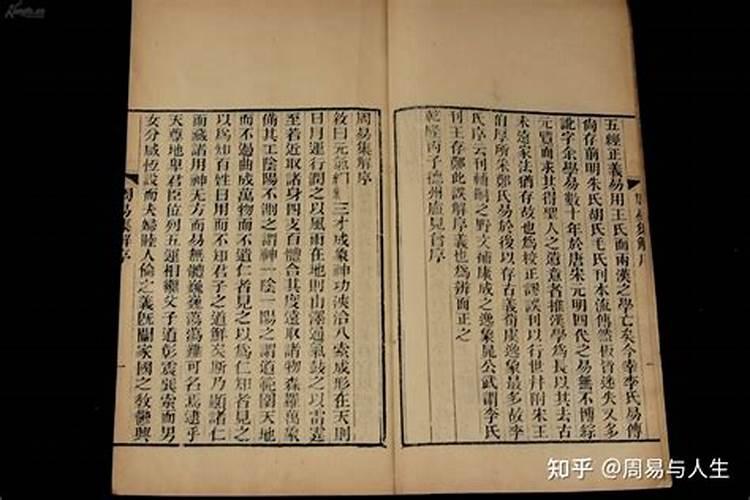 五經正義易用王氏而兩漢之學亡矣今幸李氏易傳
尚存前明朱氏胡氏毛氏刊本流傳然板皆迷失又多
訛字余學易數十年於唐宋元明四代之易無不博綜
元覽而求其得聖人之遺意者推漢學爲長以其去古
未遠家法猶存故也爲校正謬誤刊以行世并附朱王
伯厚所朱鄭氏易於後以存古義荀虞逸象最多故李
氏序云刊輔嗣之野文補康成之逸象晁公武謂李氏
刊王存鄭此誤解序義也爲辨而正之
乾隆丙子德州盧見曾序
周易集解序
周易集解序
敘曰元氣絪縕三才成象神功浹洽八索成形在天則
日月運行潤之以風雨在地則山澤通氣鼓之以雷霆
至若近取諸身四支百體合其度遠取諸物森羅萬象
備其工陰陽不測之謂神一陰一陽之謂道範圍天地
而不過曲成萬物而不遺仁者見之以爲仁知者見之
以爲知百姓日用而不知君子之道鮮矣斯乃顯諸仁
而藏諸用神无方而易無體巍巍蕩蕩難可名焉逮乎
天尊地卑君臣位列五運相繼父子道彰震巽索而男
女分咸恆設而夫婦睦人倫之義旣闡家國之敎鬱興
周易集解序
知乎 @周易与人生